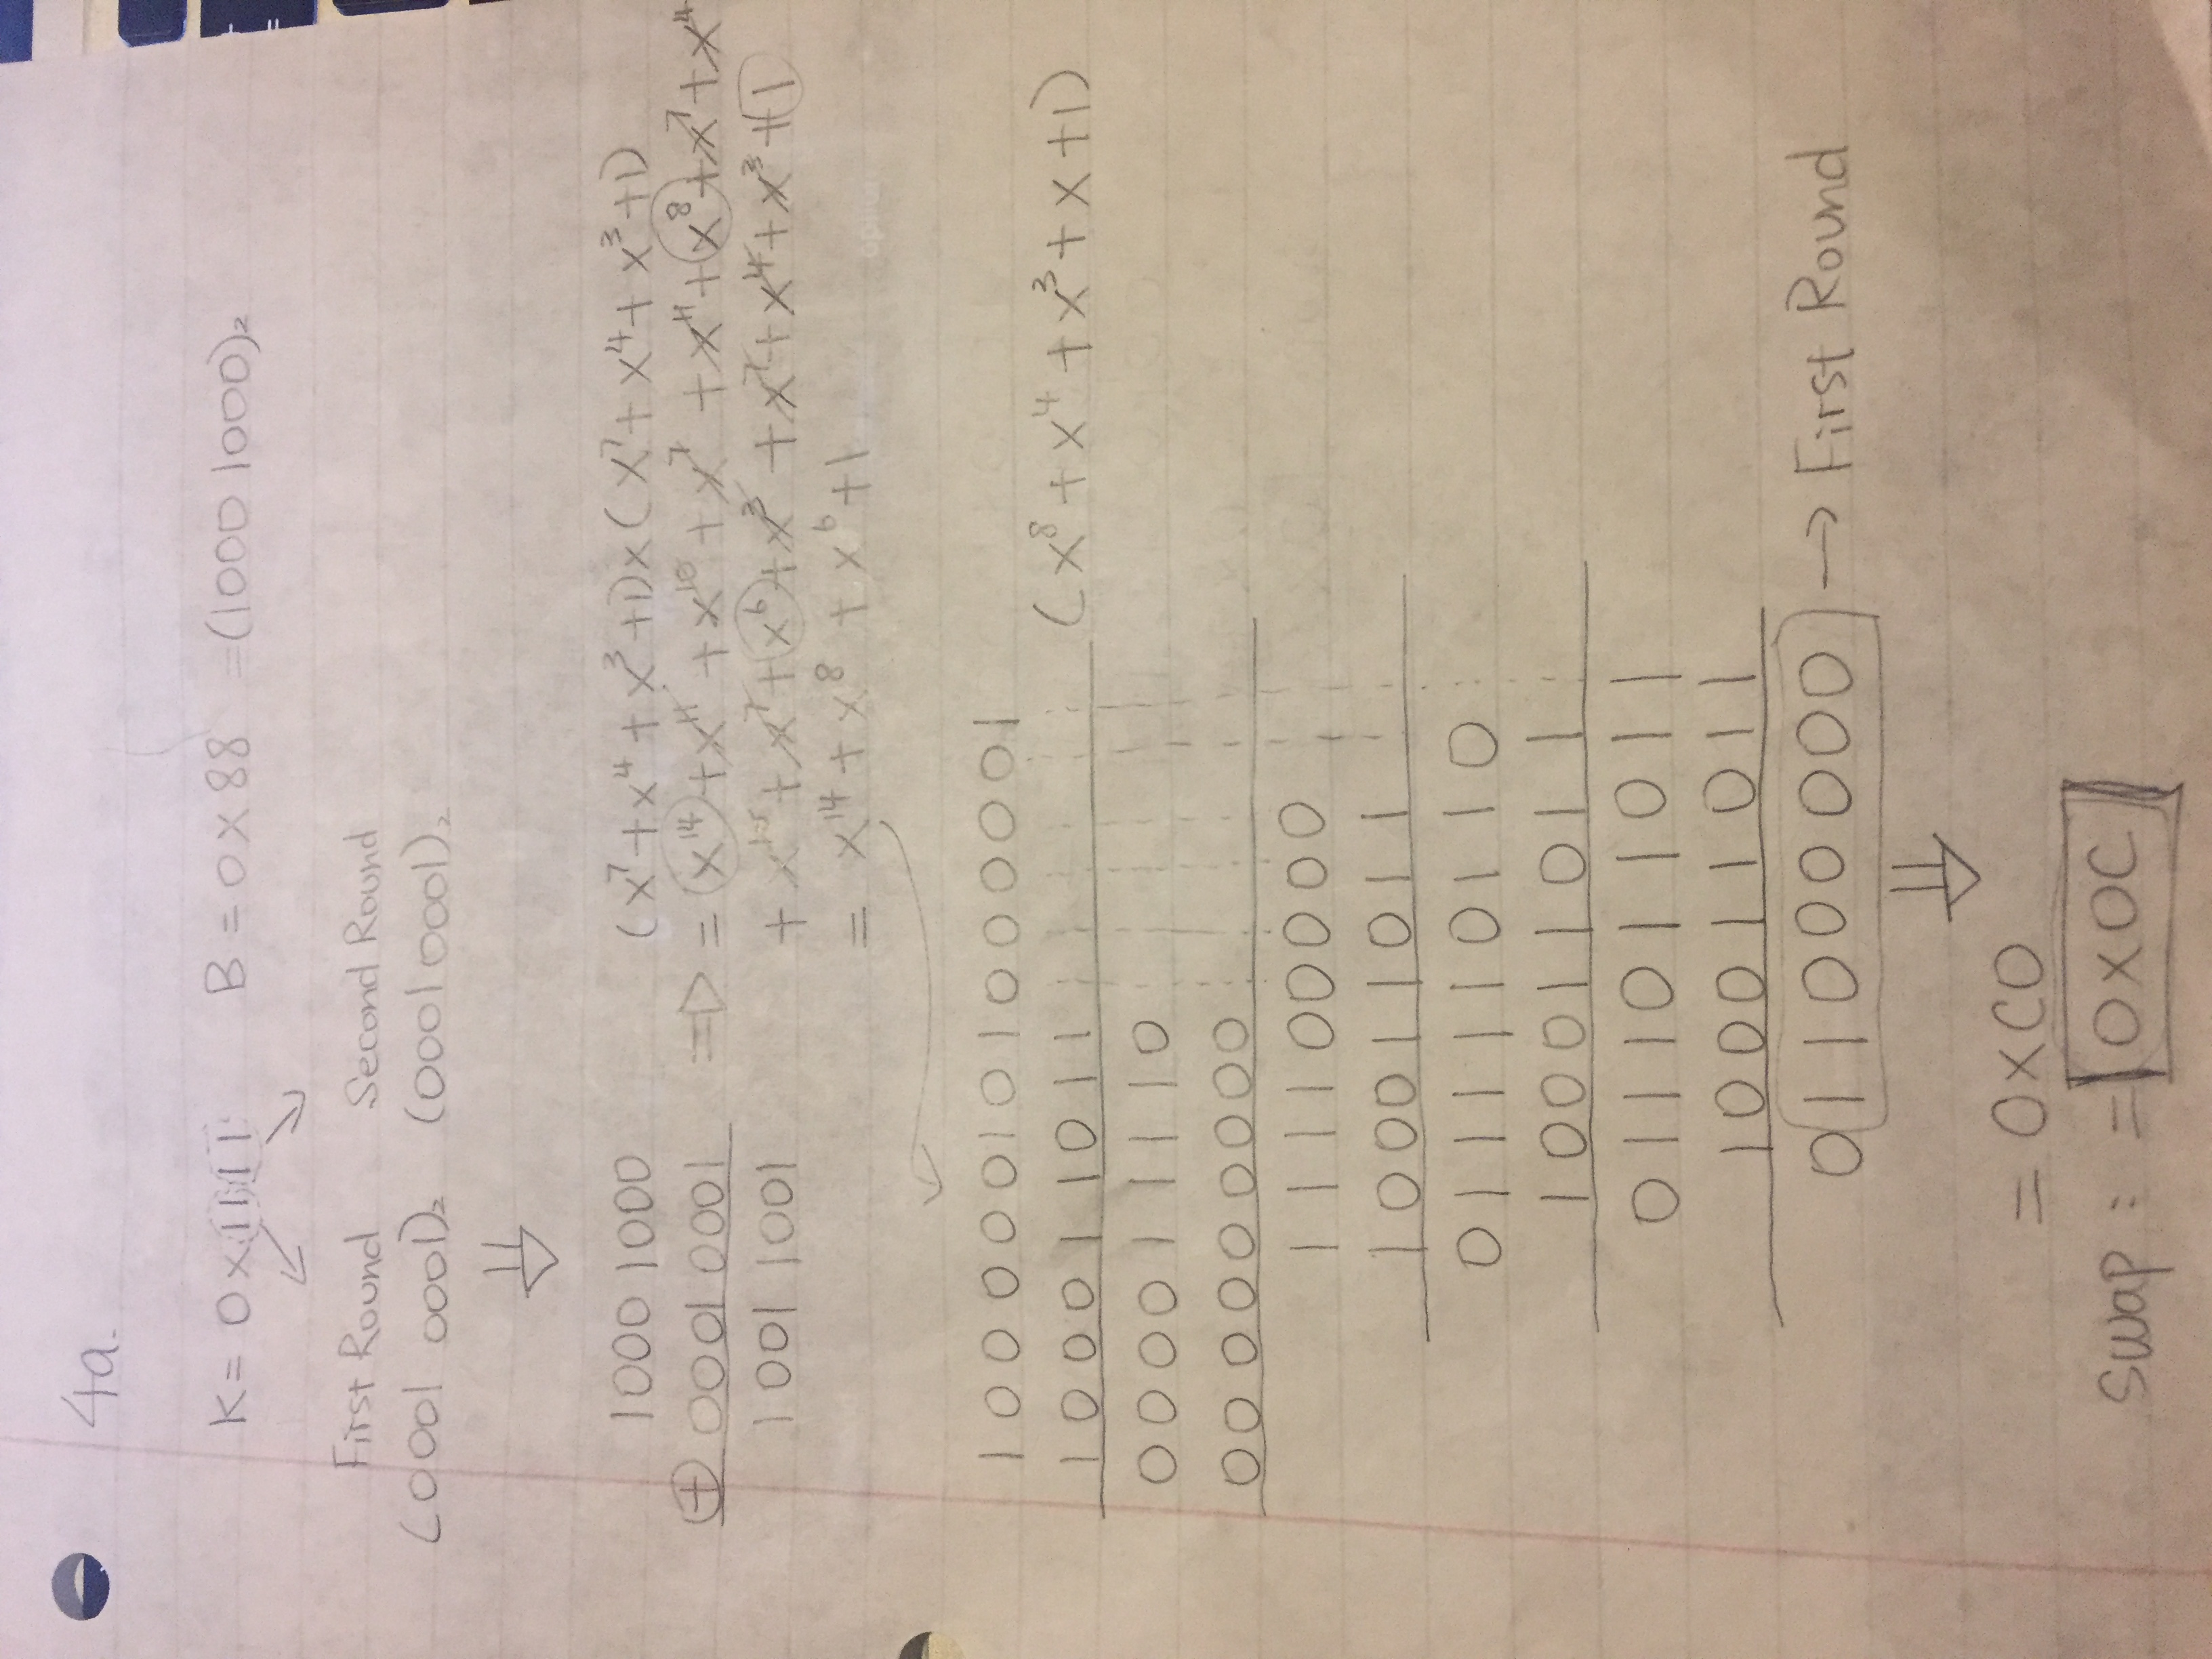 4a.
K = 0x1111 B = 0x88 = (1000 1000)₂
First Round Second Round
(0001 0001)₂ (0001 0001)₂
⇓
1000 1000 (x⁷+x⁴+x³+1)x(x⁷+x⁴+x³+1)
⊕ 0001 0001 ⇒ = x¹⁴+x¹¹+x¹⁰+x⁷+x¹¹+x⁸+x⁷+x⁴
1001 1001 + x¹⁰+x⁷+x⁶+x³+x⁷+x⁴+x³+1
= x¹⁴+x⁸+x⁶+1
100000101000001
100011011 (x⁸+x⁴+x³+x+1)
000011110
000000000
111100000
100011011
011111010
100011011
011101011
100011011
011000000 → First Round
⇓
= 0xC0
Swap: = 0x0C